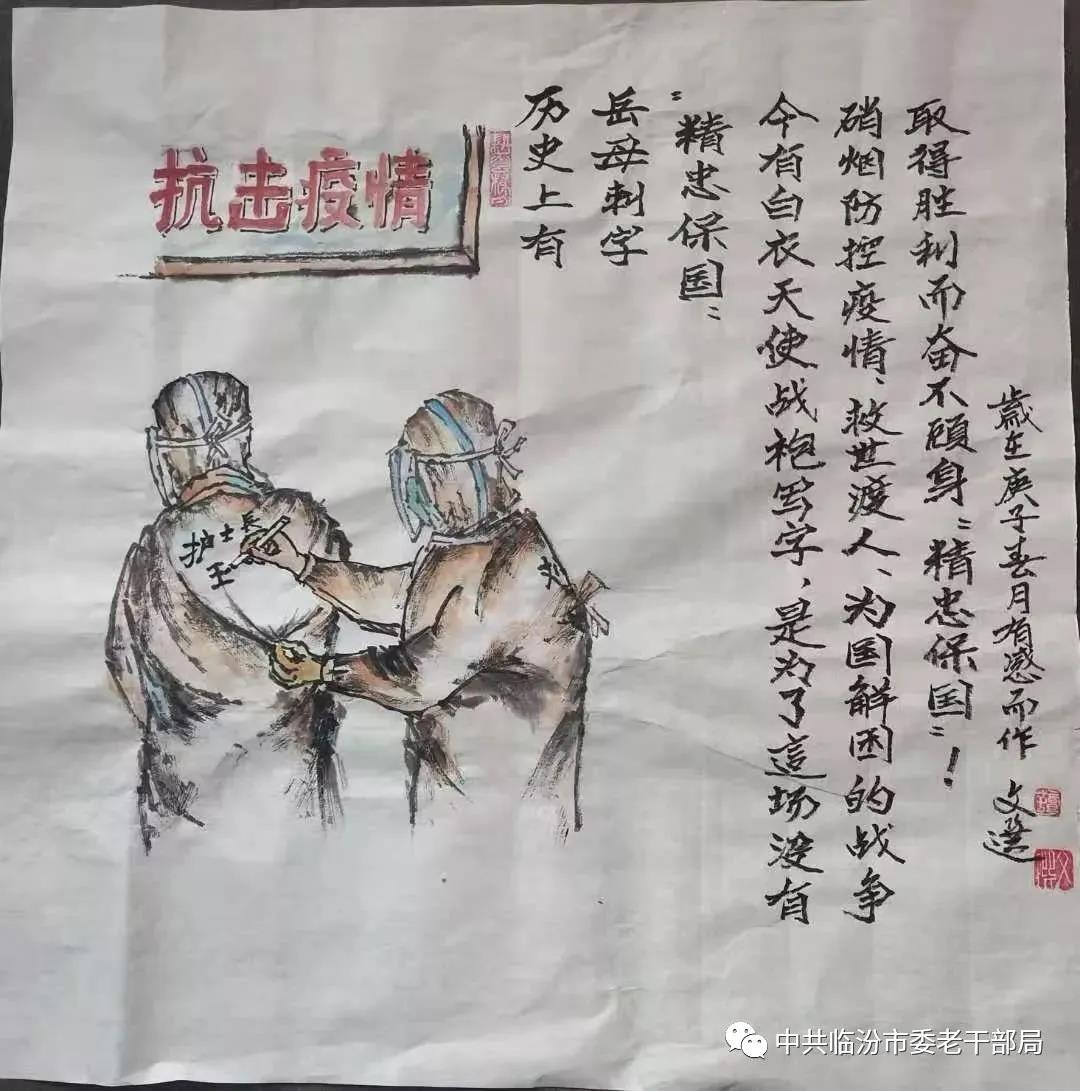 抗击疫情
历史上有
岳母刺字
"精忠保国"
今有白衣天使战袍写字，是为了這场没有
硝烟防控疫情、救世渡人、为国解困的战争
取得胜利而奋不顾身"精忠保国"！
歲在庚子春月有感而作
文選
护士長
王
中共临汾市委老干部局